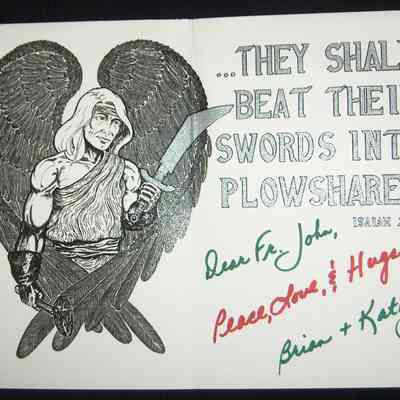 ...THEY SHAL
BEAT THEI
SWORDS INT
PLOWSHARE
ISAIAH 2
Dear Fr. John,
Peace, Love, & Hugs
Brian + Kat